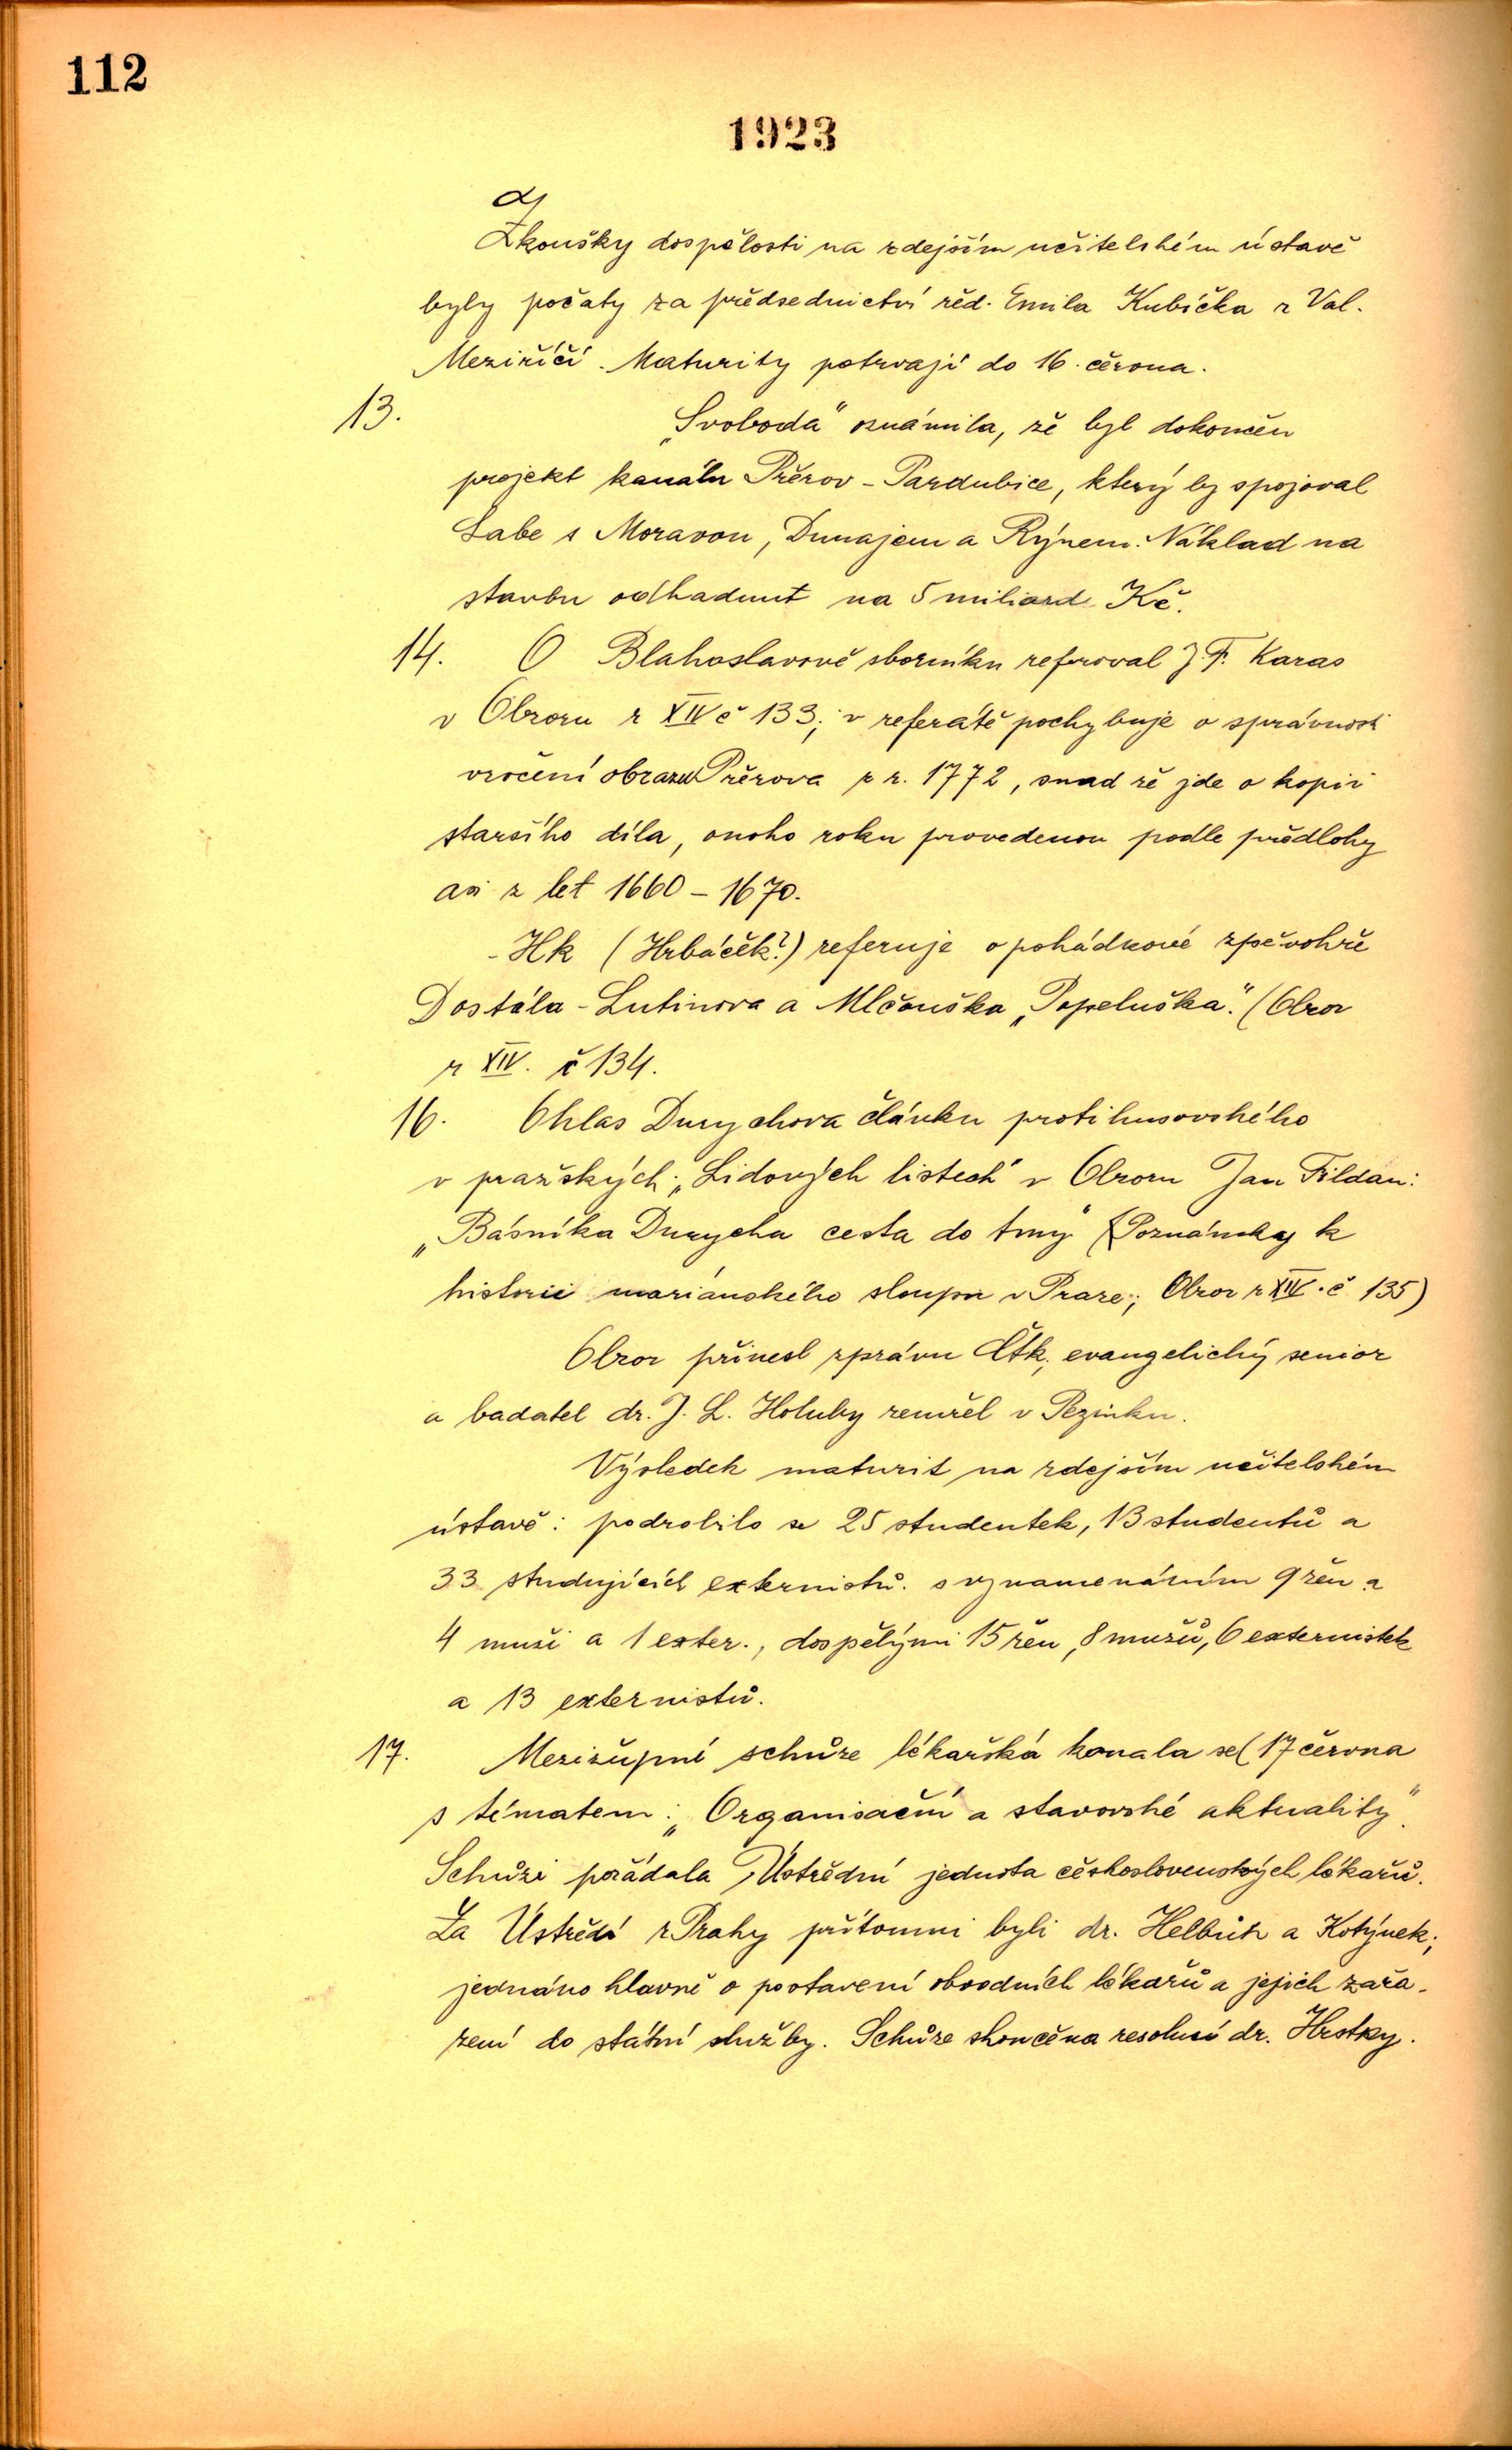 112
1923
Zkoušky dospělosti na zdejším učitelském ústavě
byly počaty za předsednictví řed. Emila Kubíčka z Val.
Meziříčí. Maturity potrvají do 16. června.
13. „Svoboda" oznámila, že byl dokončen
projekt kanálu Přerov - Pardubice, který by spojoval
Labe s Moravou, Dunajem a Rýnem. Náklad na
stavbu odhadnut na 5 miliard Kč.
14. O Blahoslavově sborníku referoval J. F. Karas
v Obzoru r XIV č 133; v referátě pochybuje o správnosti
vročení obrazu Přerova z r. 1772, snad že jde o kopii
staršího díla, onoho roku provedenou podle předlohy
asi z let 1660 - 1670.
- Hk (Hrbáček?) referuje o pohádkové zpěvohře
Dostála - Lutinova a Mlčouška „Popeluška". (Obzor
r XIV. č 134.
16. Ohlas Durychova článku protihusovského
v pražských „Lidových listech" v Obzoru Jan Fildan:
„Básníka Durycha cesta do tmy" (Poznámky k
historii mariánského sloupu v Praze; Obzor r XIV. č 135)
Obzor přinesl zprávu Čtk; evangelický senior
a badatel dr. J. L. Holuby zemřel v Pezinku.
Výsledek maturit na zdejším učitelském
ústavě: podrobilo se 25 studentek, 13 studentů a
33 studujících externistů. s vyznamenáním 9 žen a
4 muži a 1 exter., dospělými 15 žen, 8 mužů, 6 externistek
a 13 externistů.
17. Mezižupní schůze lékařská konala se (17 června
s tématem: „Organisační a stavovské aktuality".
Schůzi pořádala Ústřední jednota československých lékařů.
Za Ústředí z Prahy přítomni byli dr. Helbich a Kotýnek;
jednáno hlavně o postavení obvodních lékařů a jejich zařa-
zení do státní služby. Schůze skončena resolucí dr. Hrstky.